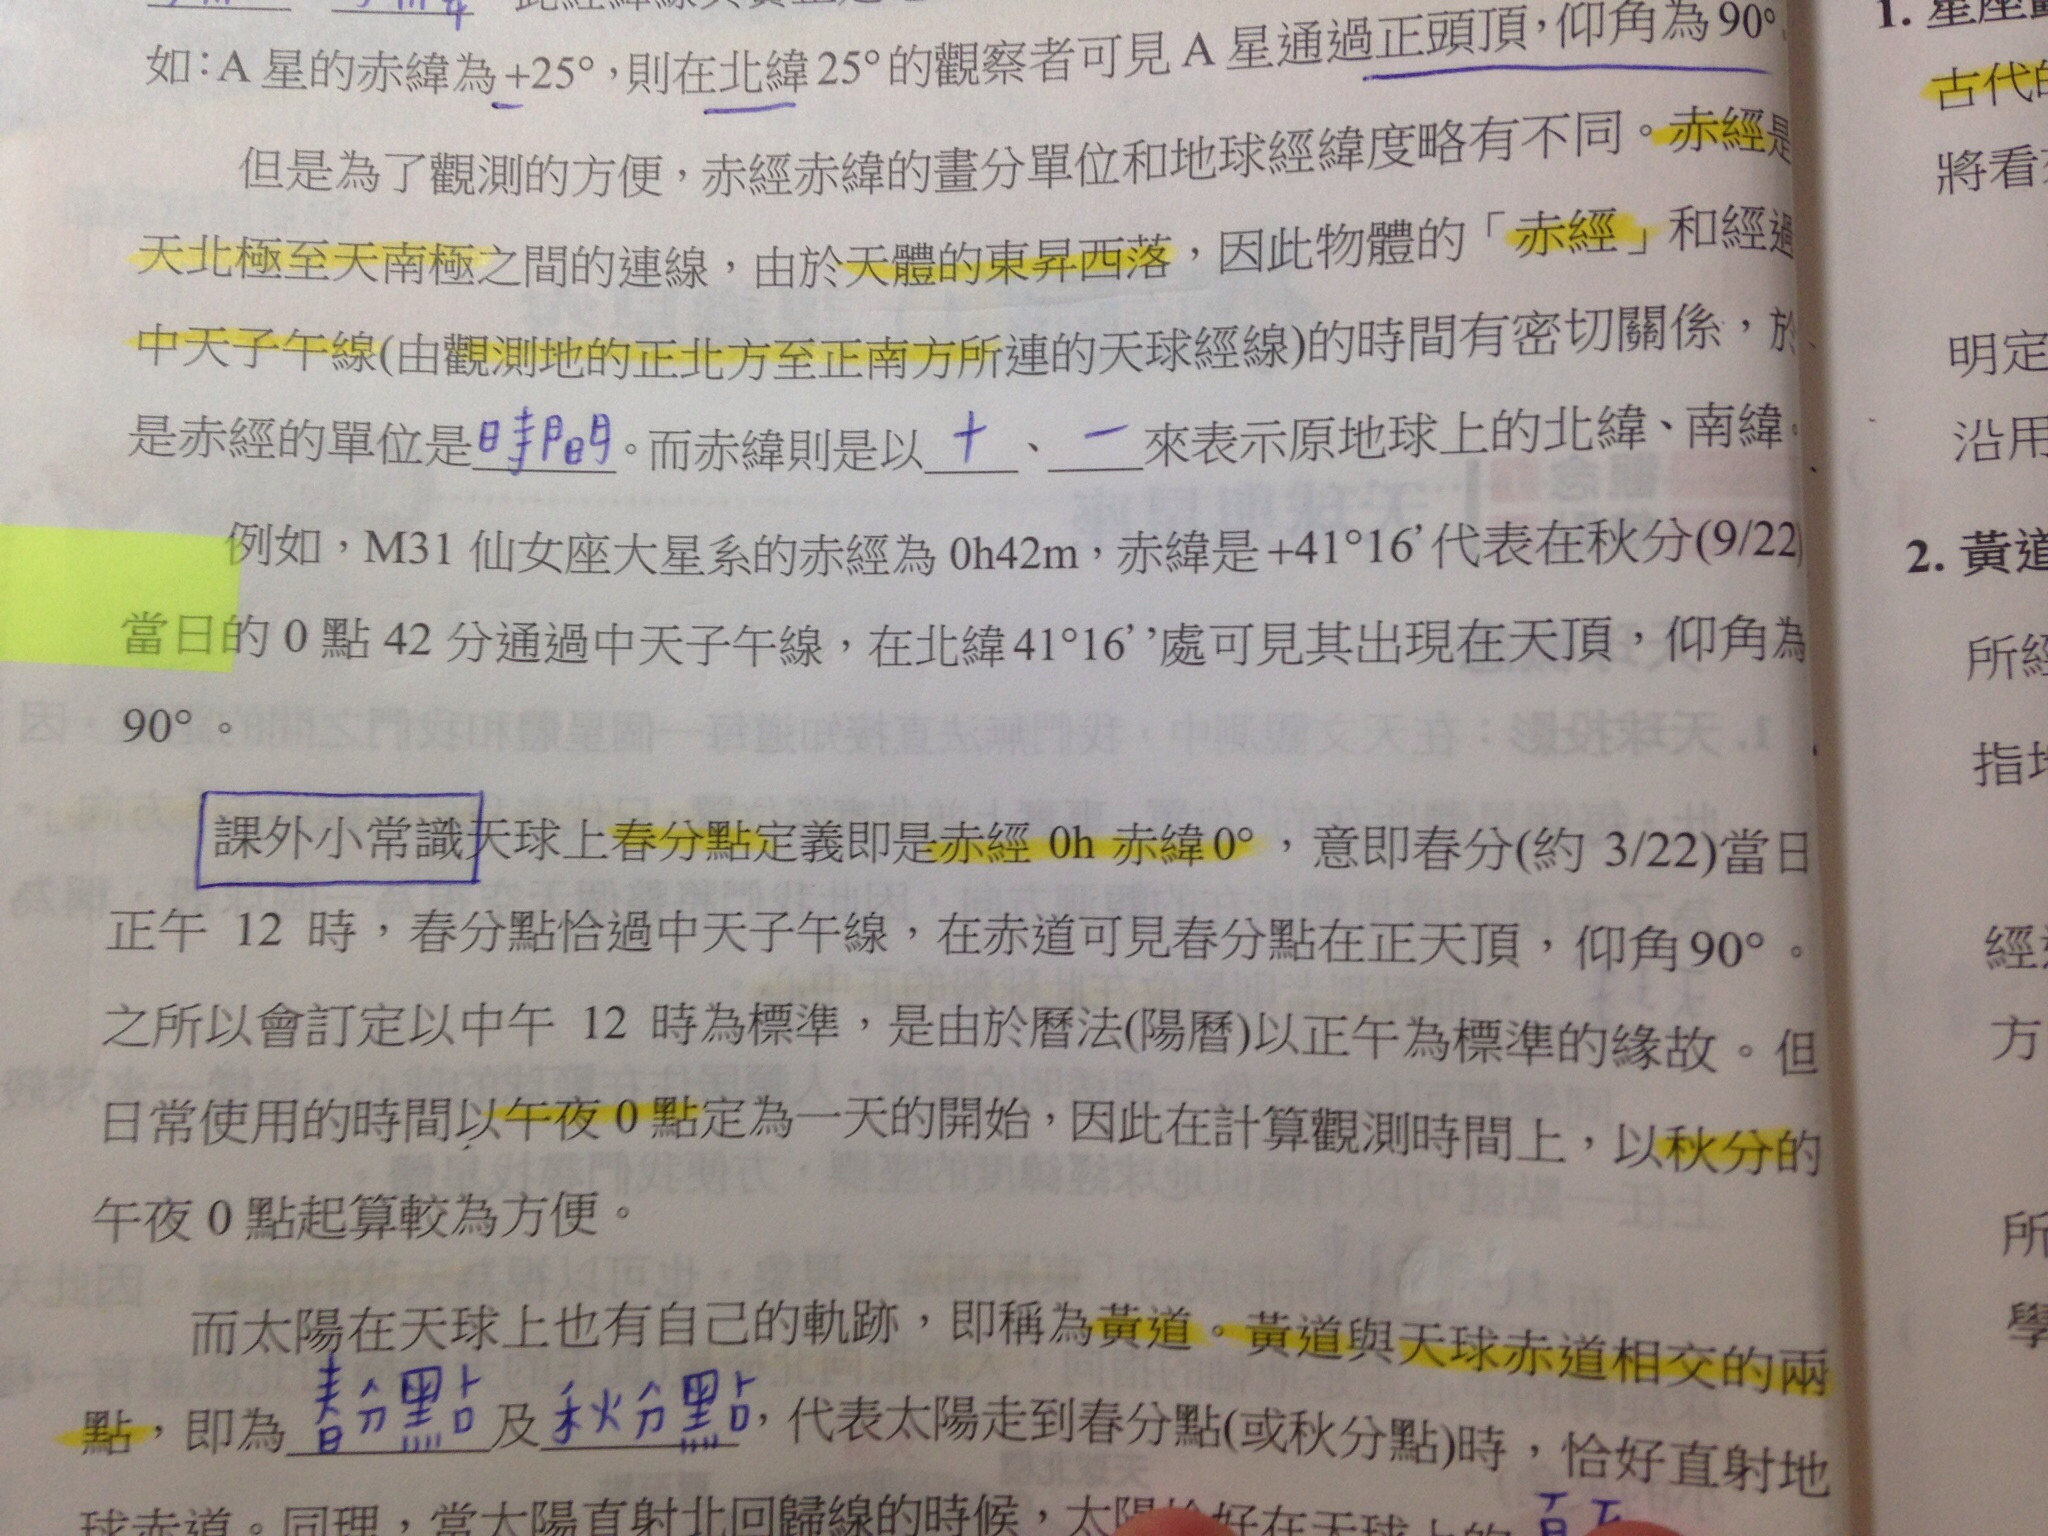 如：A 星的赤緯為 +25°，則在北緯 25° 的觀察者可見 A 星通過正頭頂，仰角為 90°
但是為了觀測的方便，赤經赤緯的畫分單位和地球經緯度略有不同。赤經是
天北極至天南極之間的連線，由於天體的東昇西落，因此物體的「赤經」和經過
中天子午線(由觀測地的正北方至正南方所連的天球經線)的時間有密切關係，於
是赤經的單位是時間。而赤緯則是以 + 、 － 來表示原地球上的北緯、南緯。
例如，M31 仙女座大星系的赤經為 0h42m，赤緯是 +41°16’ 代表在秋分(9/22)
當日的 0 點 42 分通過中天子午線，在北緯 41°16’ ’處可見其出現在天頂，仰角為
90°。
課外小常識天球上春分點定義即是赤經 0h 赤緯 0°，意即春分(約 3/22)當日
正午 12 時，春分點恰過中天子午線，在赤道可見春分點在正天頂，仰角 90°。
之所以會訂定以中午 12 時為標準，是由於曆法(陽曆)以正午為標準的緣故。但
日常使用的時間以午夜 0 點定為一天的開始，因此在計算觀測時間上，以秋分的
午夜 0 點起算較為方便。
而太陽在天球上也有自己的軌跡，即稱為黃道。黃道與天球赤道相交的兩
點，即為春分點及秋分點，代表太陽走到春分點(或秋分點)時，恰好直射地
球赤道。同理，當太陽直射北回歸線的時候，太陽恰好在天球上的
1. 星座
古代的
將看
明定
沿用
2. 黃道
所經
指地
經
方
所
學